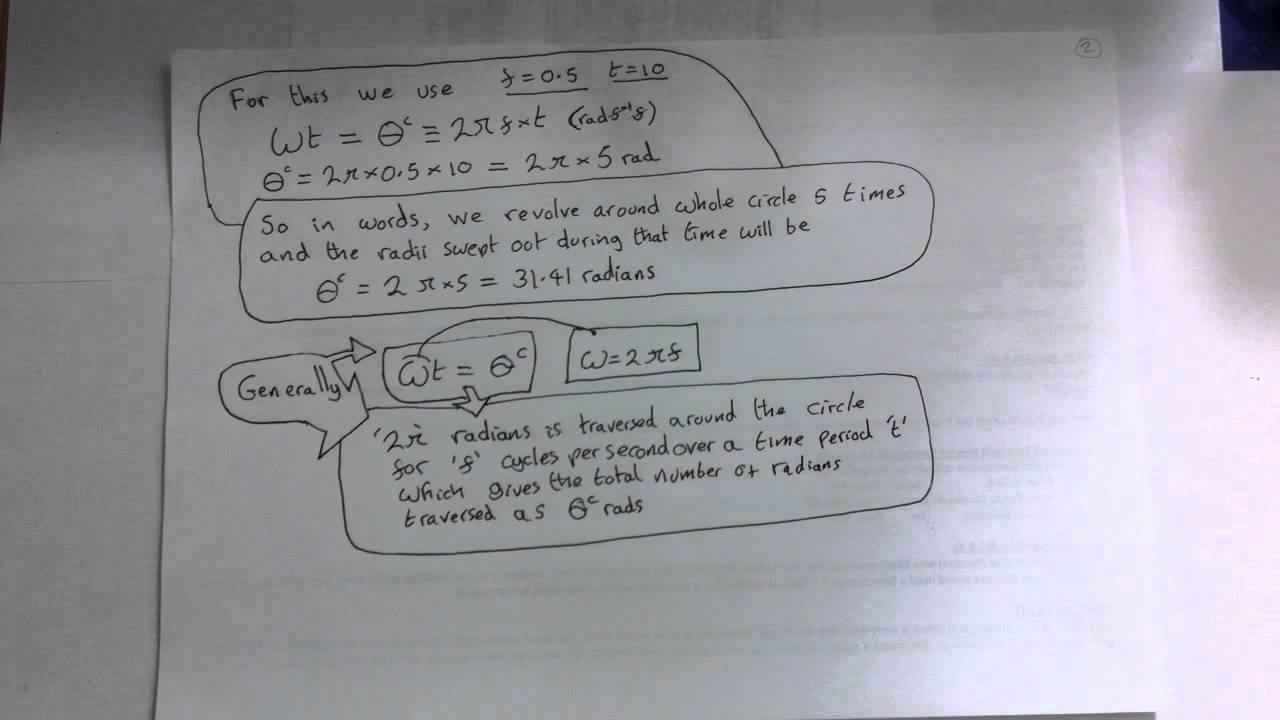 2
For this we use f=0.5 t=10
ωt = θᶜ ≡ 2πf×t (rads⁻¹s)
θᶜ = 2π×0.5×10 = 2π×5 rad
So in words, we revolve around whole circle 5 times
and the radii swept out during that time will be
θᶜ = 2π×5 = 31.41 radians
Generally
ωt = θᶜ
ω=2πf
'2π radians is traversed around the circle
for 'f' cycles per second over a time period 't'
which gives the total number of radians
traversed as θᶜ rads